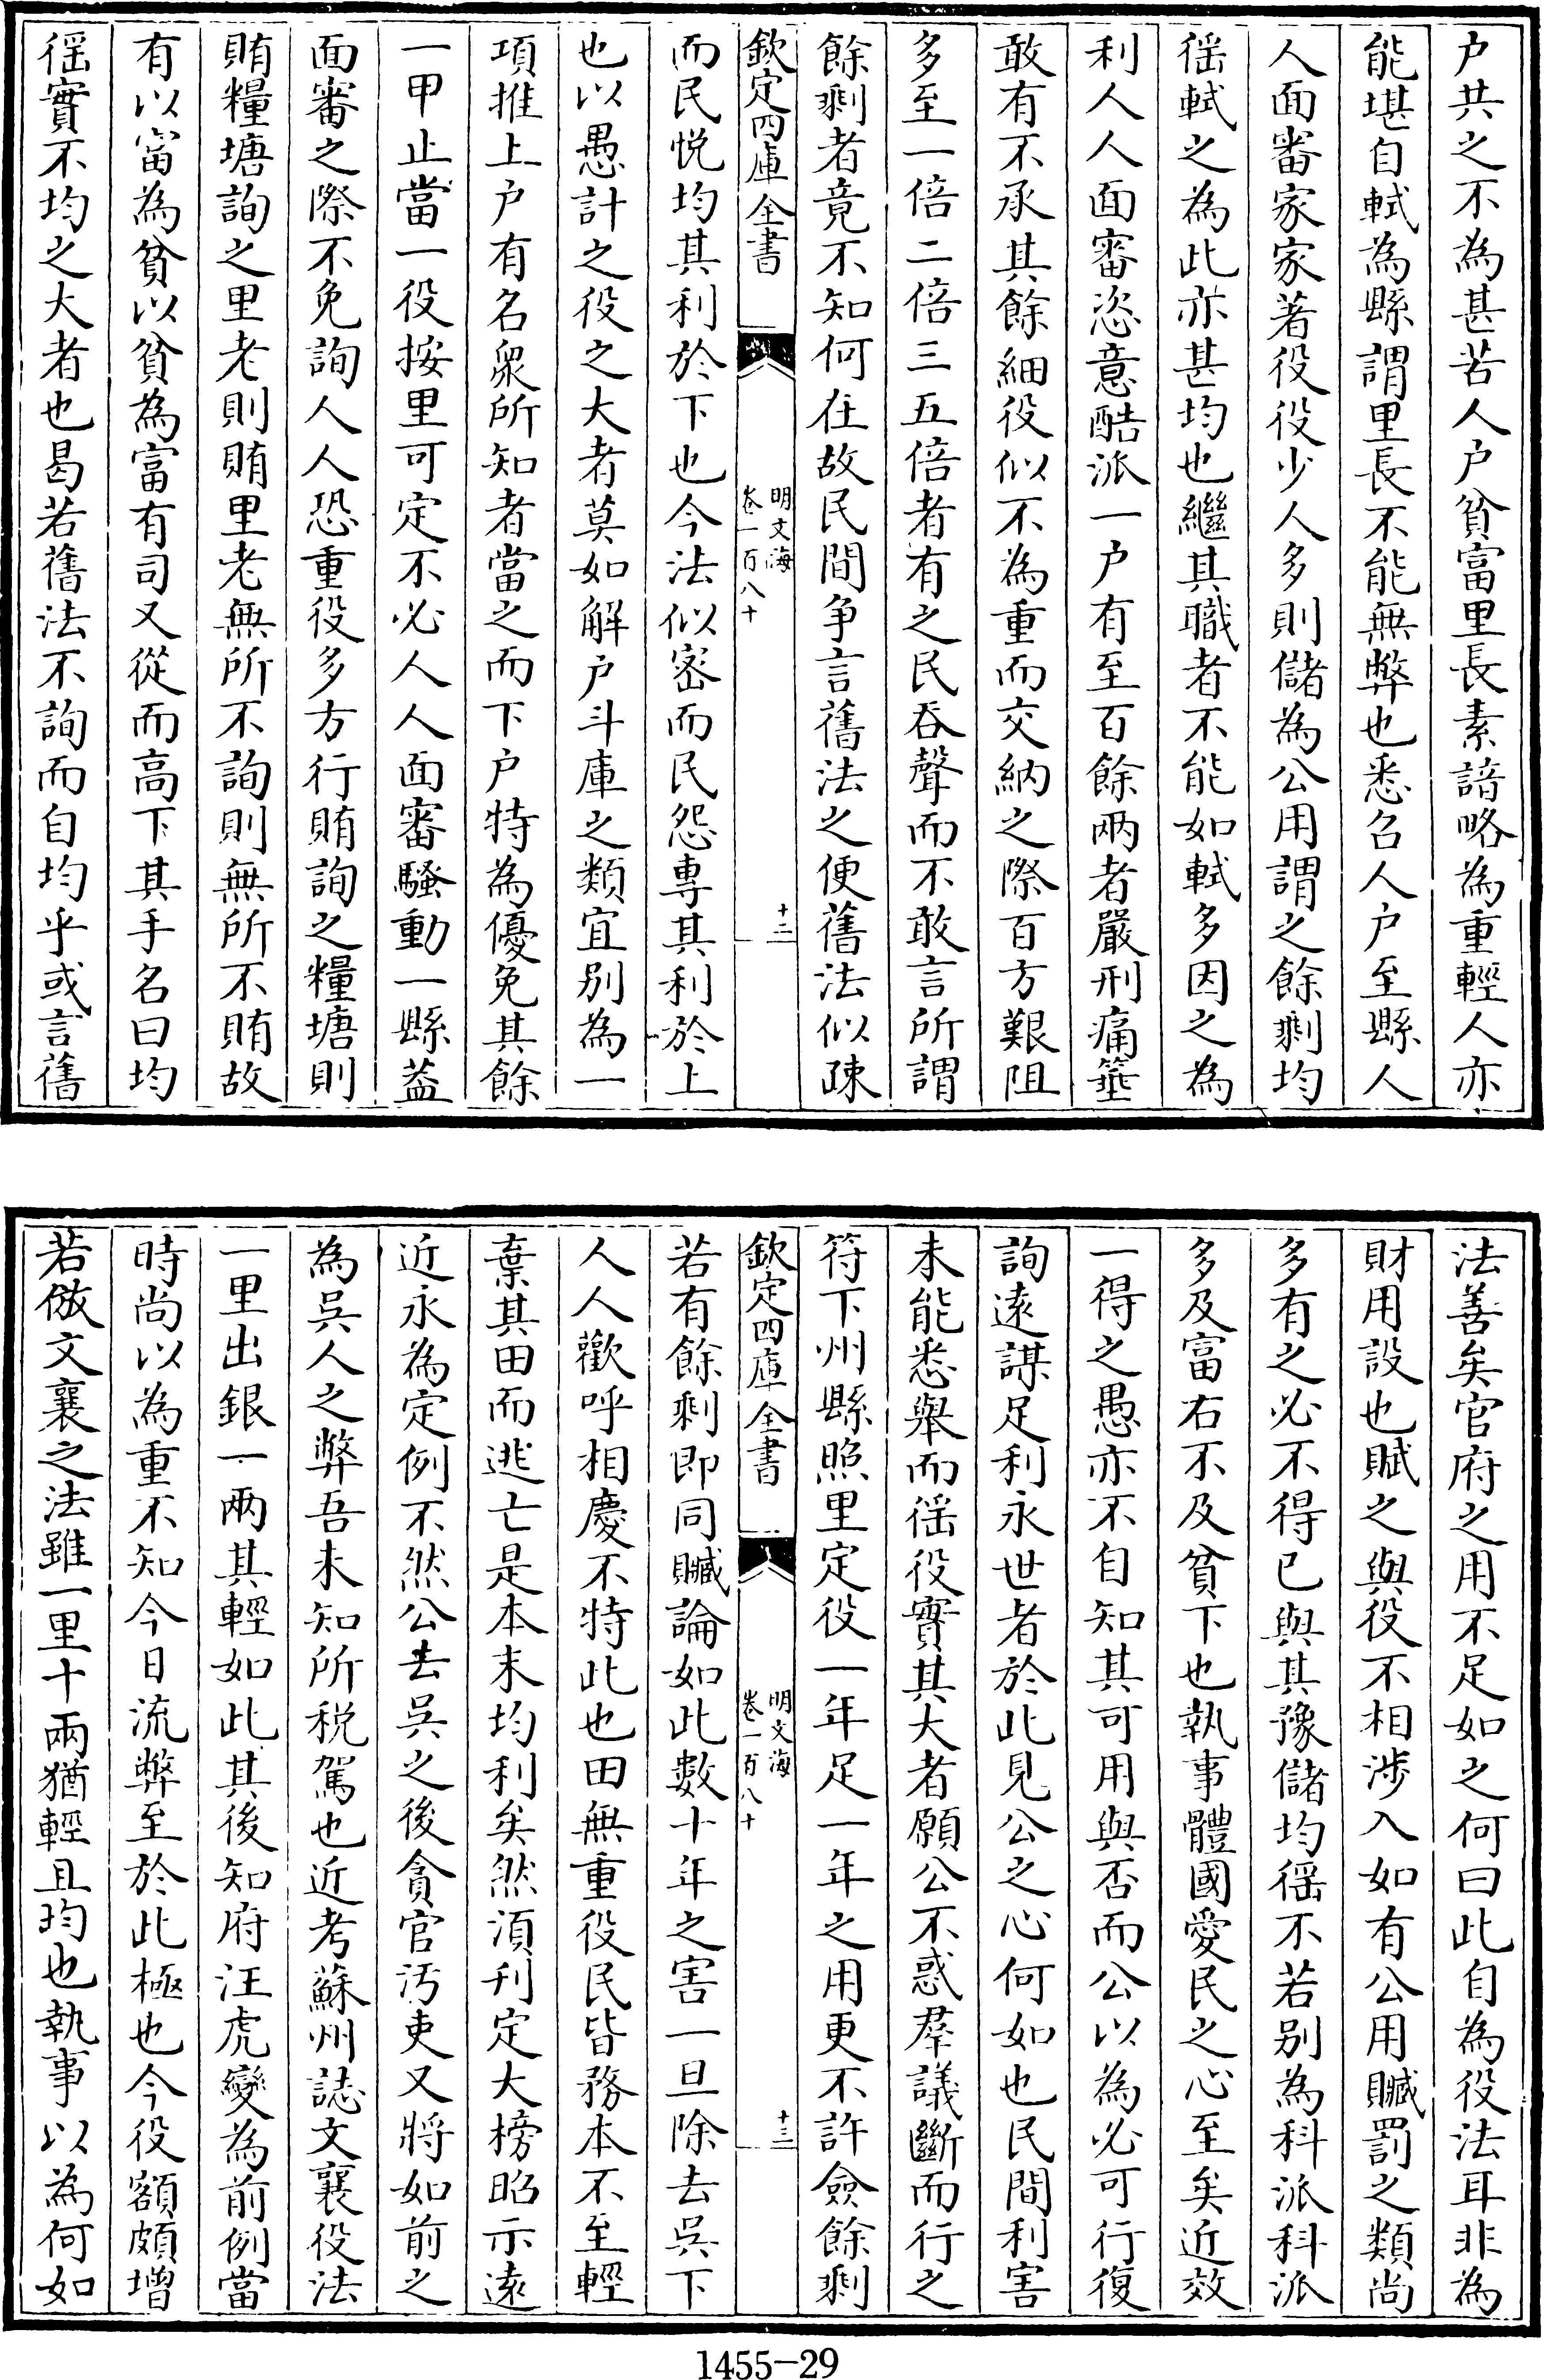 户共之不為甚苦人户貧富里長素諳略為重輕人亦
能堪自軾為縣謂里長不能無弊也悉召人户至縣人
人面審家家著役役少人多則儲為公用謂之餘剩均
徭軾之為此亦甚均也繼其職者不能如軾多因之為
利人人面審恣意酷派一户有至百餘兩者嚴刑痛箠
敢有不承其餘細役似不為重而交納之際百方艱阻
多至一倍二倍三五倍者有之民吞聲而不敢言所謂
餘剩者竟不知何在故民間争言舊法之便舊法似疎
欽定四庫全書
明文海
卷一百八十
十二
而民悦均其利於下也今法似密而民怨專其利於上
也以愚計之役之大者莫如解户斗庫之類宜别為一
項推上户有名衆所知者當之而下户特為優免其餘
一甲止當一役按里可定不必人人面審騷動一縣蓋
面審之際不免詢人人恐重役多方行賄詢之糧塘則
賄糧塘詢之里老則賄里老無所不詢則無所不賄故
有以富為貧以貧為富有司又從而高下其手名曰均
徭實不均之大者也曷若舊法不詢而自均乎或言舊
法善矣官府之用不足如之何曰此自為役法耳非為
財用設也賦之與役不相涉入如有公用贓罰之類尚
多有之必不得已與其豫儲均徭不若别為科派科派
多及富右不及貧下也執事體國愛民之心至矣近效
一得之愚亦不自知其可用與否而公以為必可行復
詢遠謀足利永世者於此見公之心何如也民間利害
未能悉舉而徭役實其大者願公不惑羣議斷而行之
符下州縣照里定役一年足一年之用更不許僉餘剩
欽定四庫全書
明文海
卷一百八十
十三
若有餘剩即同贓論如此數十年之害一旦除去吳下
人人歡呼相慶不特此也田無重役民皆務本不至輕
棄其田而逃亡是本末均利矣然須刊定大榜昭示遠
近永為定例不然公去吳之後貪官汚吏又將如前之
為吳人之弊吾未知所税駕也近考蘇州誌文襄役法
一里出銀一兩其輕如此其後知府汪虎變為前例當
時尚以為重不知今日流弊至於此極也今役額頗增
若倣文襄之法雖一里十兩猶輕且均也執事以為何如
1455-29